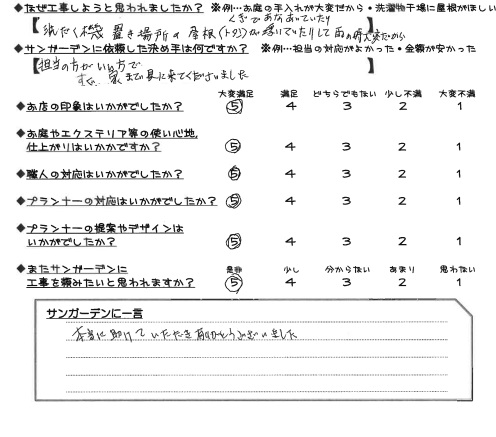 ◆なぜ工事しようと思われましたか？ ※例…お庭の手入れが大変だから・洗濯物干場に屋根がほしい
くぎであなあいていたり
【洗たく機 置き場所の屋根(トタン)が浮いていたりして雨の時大変だから】
◆サンガーデンに依頼した決め手は何ですか？ ※例…担当の対応がよかった・金額が安かった
【担当の方がいい方で
すぐ、家まで見に来てくださいました】
大変満足 満足 どちらでもない 少し不満 大変不満
◆お店の印象はいかがでしたか？ 5 4 3 2 1
◆お庭やエクステリア等の使い心地、
仕上がりはいかかですか？ 5 4 3 2 1
◆職人の対応はいかがでしたか？ 5 4 3 2 1
◆プランナーの対応はいかがでしたか？ 5 4 3 2 1
◆プランナーの提案やデザインは
いかがでしたか？ 5 4 3 2 1
◆またサンガーデンに 是非 少し 分からない あまり 思わない
工事を頼みたいと思われますか？ 5 4 3 2 1
サンガーデンに一言
本当に助けていただき ありがとうございました